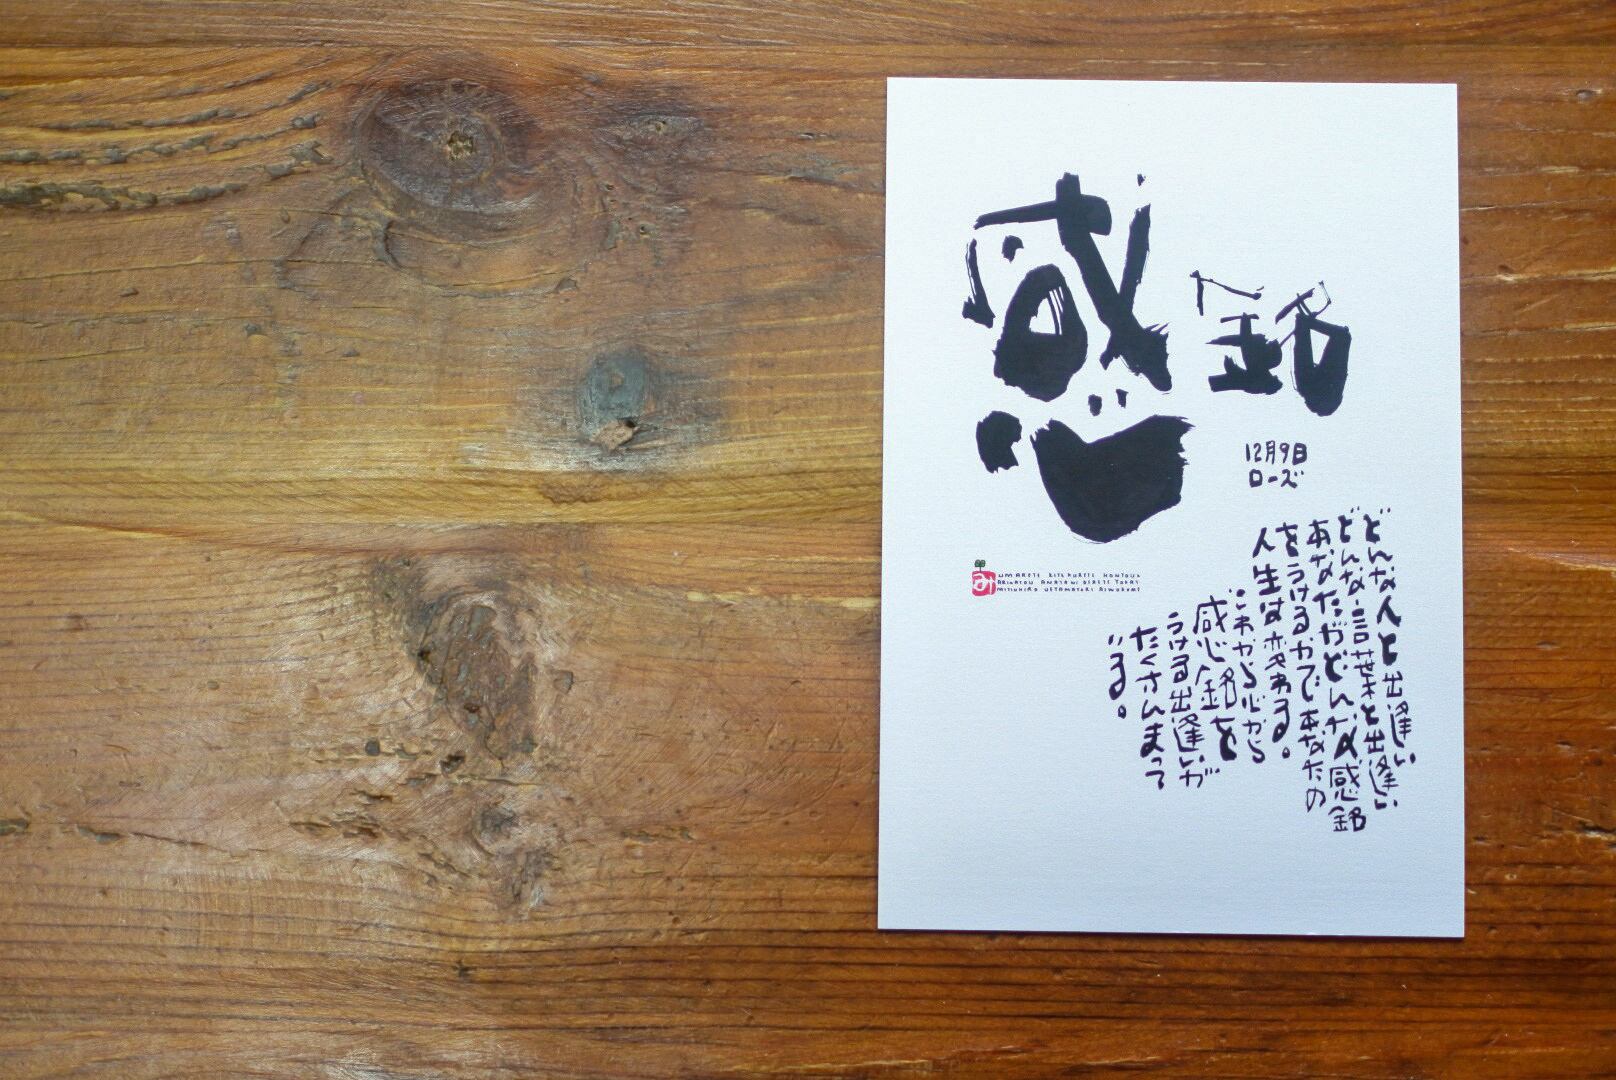 感銘
12月9日
ローズ
どんな人と出逢い
どんな言葉と出逢い
あなたがどんな感銘
をうけるかであなたの
人生は変わる。
これから心から
感銘を
うける出逢いが
たくさんまって
いる。
み
UMARETE KITEKURETE HONTOUN
ARIGATOU ANATANI DEAETE YOKAT